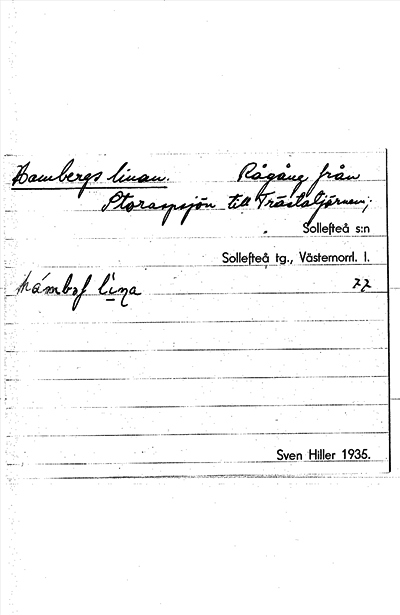 Hambergs linan. Rågång från
Storaspsjön till Trästatjärnen;
Sollefteå s:n
Sollefteå tg., Västernorrl. l.
hámbaʃ lina 77
Sven Hiller 1935.